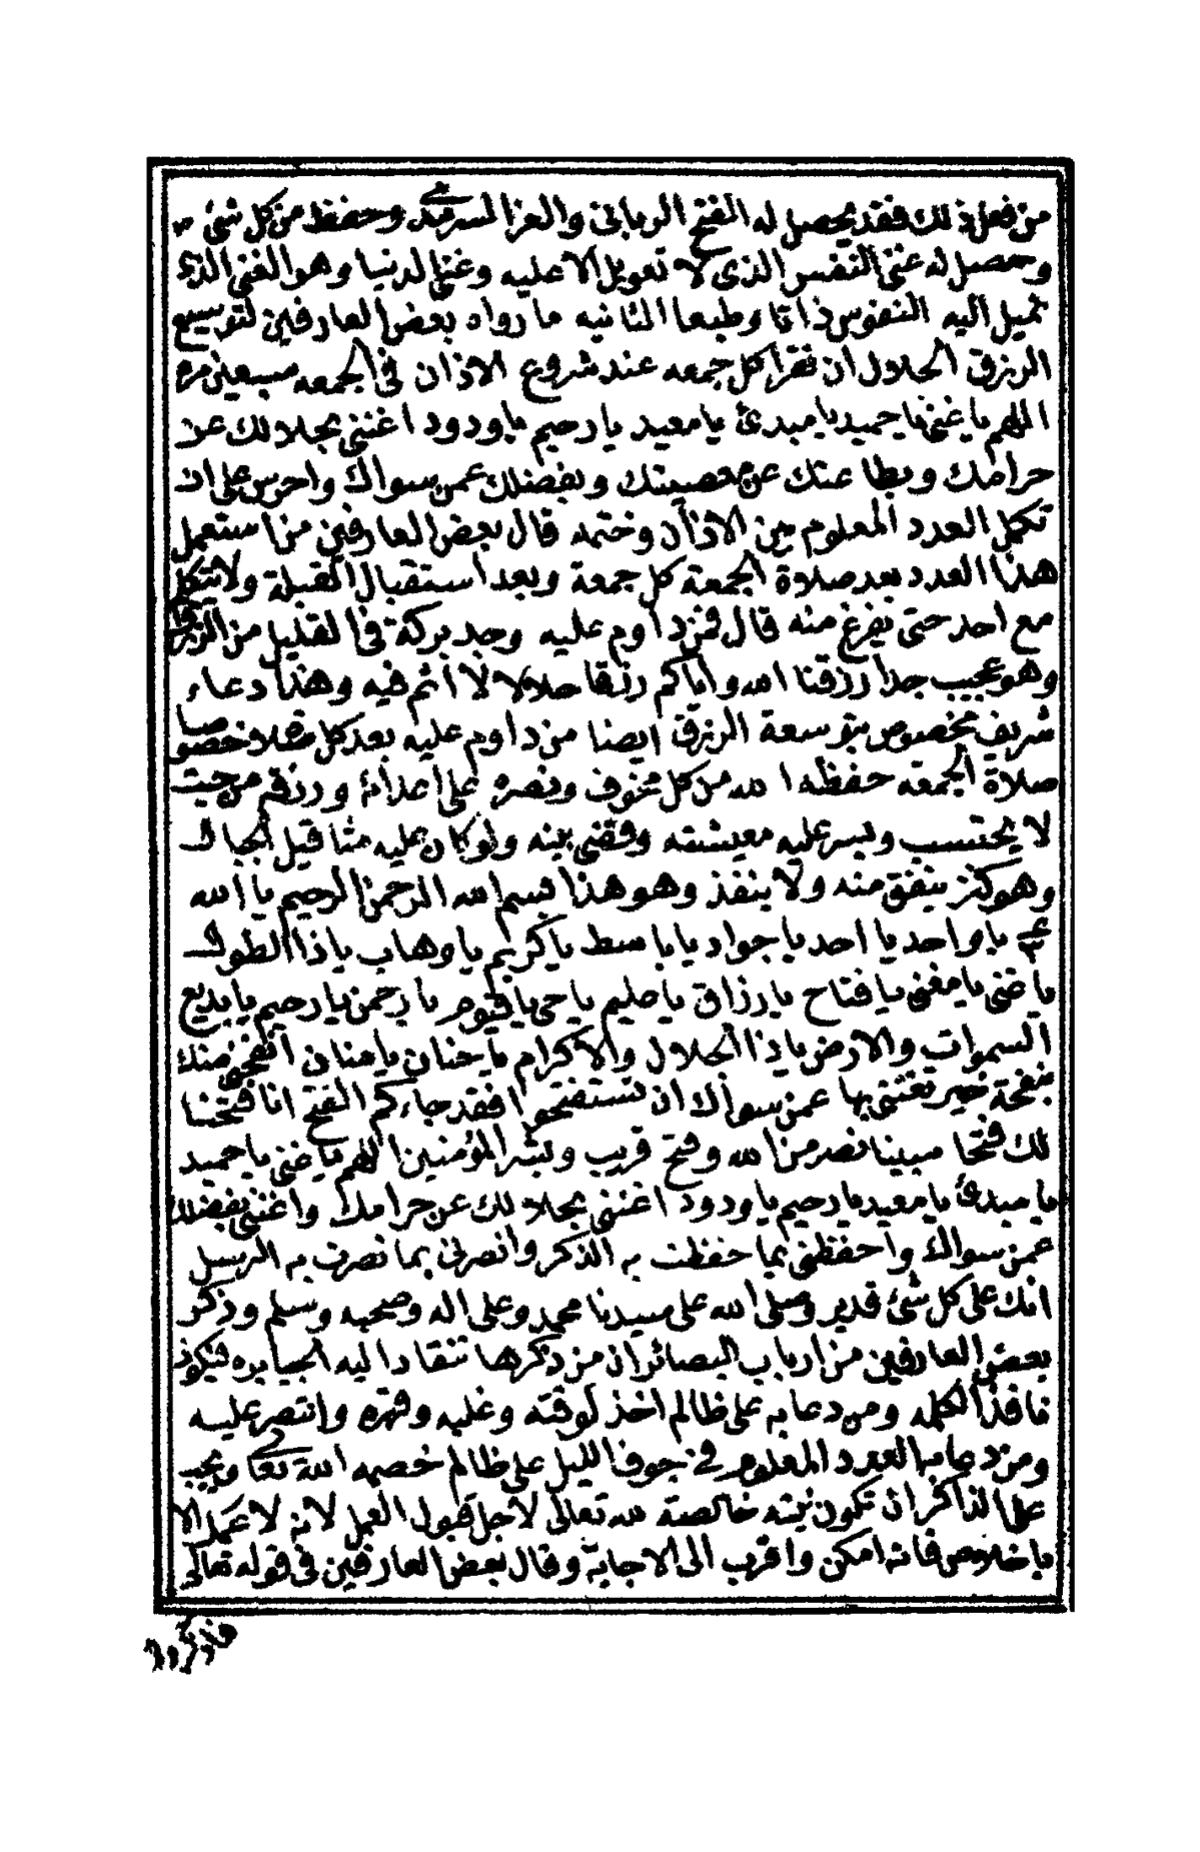 من فعل ذلك فقد يحصل له الفتح الربانى والعز السرمدى وحفظ من كل شئ
وحصل له غنى النفس الذى لا تعويل الا عليه وغنى الدنيا وهو الغنى الذى
تميل اليه النفوس ذاتا وطبعا الثانيه ما رواه بعض العارفين لتوسيع
الرزق الحلال ان تقرا كل جمعه عند شروع الاذان فى الجمعه سبعين مره
اللهم يا غنى يا حميد يا مبدئ يا معيد يا رحيم يا ودود اغننى بحلالك عن
حرامك وبطاعتك عن معصيتك وبفضلك عمن سواك واحرس على ان
تكمل العدد المعلوم بين الاذان وختمه قال بعض العارفين من استعمل
هذا العدد بعد صلاة الجمعة كل جمعة وبعد استقبال القبلة ولا يتكلم
مع احد حتى يفرغ منه قال فمن داوم عليه وجد بركة فى القليل من الرزق
وهو عجيب جدا رزقنا الله واياكم رزقا حلالا لا اثم فيه وهذا دعاء
شريف مخصوص بتوسعة الرزق ايضا من داوم عليه بعد كل صلاة خصوصا
صلاة الجمعه حفظه الله من كل مخوف ونصره على اعدائه ورزقه من حيث
لا يحتسب ويسر عليه معيشته وقضى دينه ولو كان عليه مثا قيل الجبال
وهو كنز ينفق منه ولا ينفذ وهو هذا بسم الله الرحمن الرحيم يا الله
يا واحد يا احد يا جواد يا باسط يا كريم يا وهاب يا ذا الطول
يا غنى يا مغنى يا فتاح يا رزاق يا حليم يا حى يا قيوم يا رحمن يا رحيم يا بديع
السموات والارض يا ذا الجلال والاكرام يا حنان يا منان انفحنى منك
بنفحة خير تغننى بها عمن سواك ان تستفتحوا فقد جاءكم الفتح انا فتحنا
لك فتحا مبينا نصر من الله وفتح قريب وبشر المؤمنين اللهم يا غنى يا حميد
يا مبدئ يا معيد يا رحيم يا ودود اغننى بحلالك عن حرامك واغننى بفضلك
عمن سواك واحفظنى بما حفظت به الذكر وانصرنى بما نصرت به الرسل
انك على كل شئ قدير وصلى الله على سيدنا محمد وعلى اله وصحبه وسلم وذكر
بعض العارفين من ارباب البصائر ان من ذكرها تنقاد اليه الجبابره فيكون
نافذ الكلمه ومن دعا به على ظالم اخذ لوقته وغلبه وقهره وانتصر عليه
ومن دعا بها العدد المعلوم فى جوف الليل على ظالم خصمه الله تعالى ويجب
على الذاكر ان تكون نيته خالصته لله تعالى لاجل قبول العمل لانه لا عمل الا
باخلاص فانه امكن واقرب الى الاجابة وقال بعض العارفين فى قوله تعالى
فاذكروا